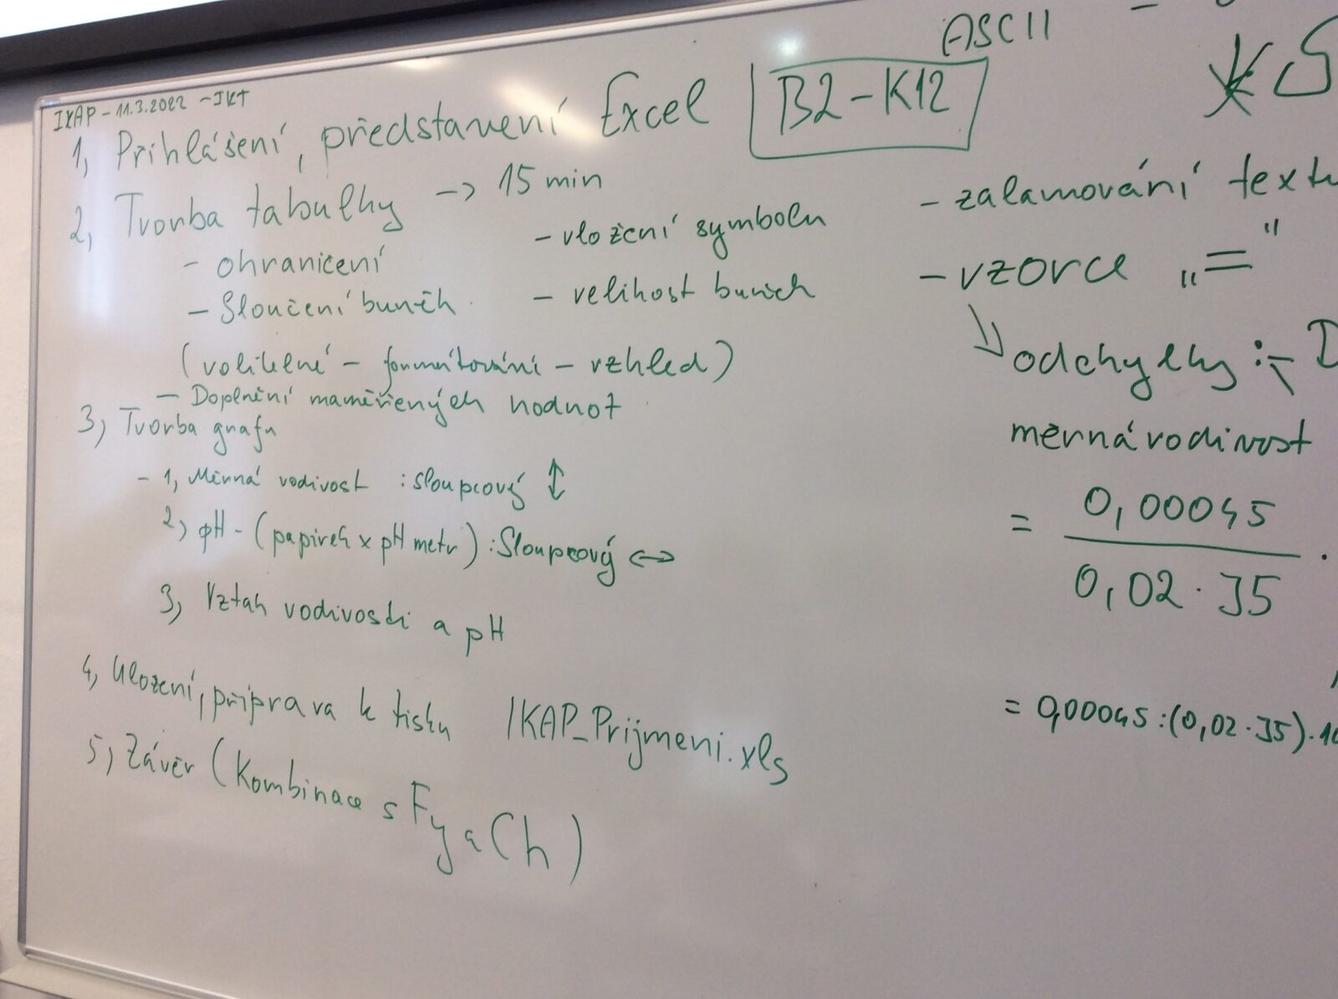 IKAP - 11.3.2022 - IKT
ASCII
1, Přihlášení, představení Excel
B2-K12
2, Tvorba tabulky -> 15 min
- ohraničení
- Sloučení buněk
- vložení symbolu
- velikost buněk
(volitelné - formátování - vzhled)
- Doplnění naměřených hodnot
3, Tvorba grafu
- 1, Měrná vodivost : sloupcový ↕
2, pH - (papírek x pH metr) : Sloupcový ↔
3, Vztah vodivosti a pH
4, Uložení, příprava k tisku IKAP_Prijmeni.xls
5, Závěr (Kombinace s Fy a Ch)
- zalamování textu
- vzorce „="
odchylky :-
měrná vodivost
= 0,00045 / 0,02 · 35 ·
= 0,00045 : (0,02 · 35) · 10